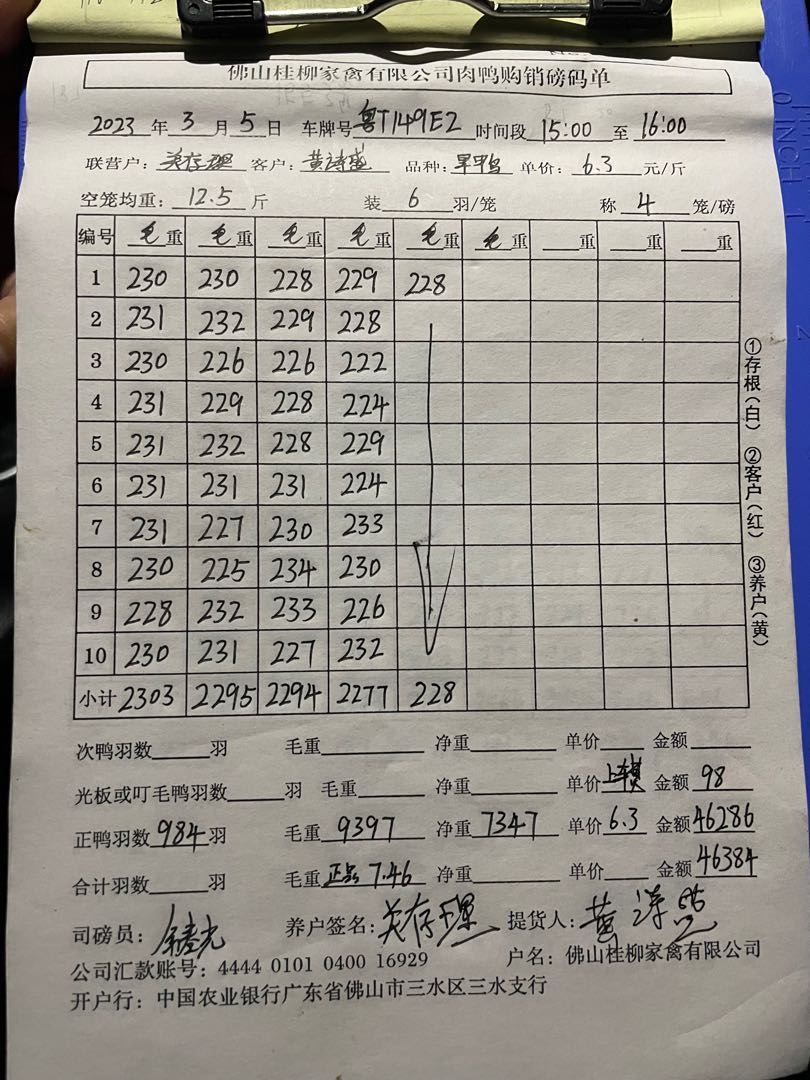 佛山桂柳家禽有限公司肉鸭购销磅码单
2023 年 3 月 5 日 车牌号 粤T149E2 时间段 15:00 至 16:00
联营户: 关存理 客户: 黄诗盛 品种: 旱鸭 单价: 6.3 元/斤
空笼均重: 12.5 斤 装 6 羽/笼 称 4 笼/磅
编号 毛重 毛重 毛重 毛重 毛重 毛重 重 重 重
1 230 230 228 229 228
2 231 232 229 228
3 230 226 226 222
4 231 229 228 224
5 231 232 228 229
6 231 231 231 224
7 231 227 230 233
8 230 225 234 230
9 228 232 233 226
10 230 231 227 232
小计 2303 2295 2294 2277 228
次鸭羽数 羽 毛重 净重 单价 金额
光板或叮毛鸭羽数 羽 毛重 净重 单价 金额 98
正鸭羽数 984 羽 毛重 9397 净重 7347 单价 6.3 金额 46286
合计羽数 羽 毛重 正品 7.46 净重 单价 金额 46384
司磅员: 养户签名: 关存理 提货人:
公司汇款账号: 4444 0101 0400 16929 户名: 佛山桂柳家禽有限公司
开户行: 中国农业银行广东省佛山市三水区三水支行
①存根(白) ②客户(红) ③养户(黄)